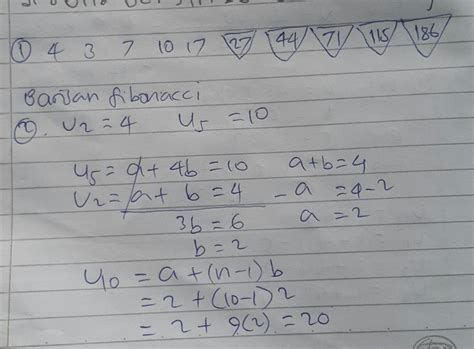 ① 4 3 7 10 17 27 44 71 115 186
Barisan fibonacci
②. U2 = 4 U5 = 10
U5 = a + 4b = 10 a+b = 4
U2 = a + b = 4 - a = 4-2
3b = 6 a = 2
b = 2
U0 = a + (n-1) b
= 2 + (10-1) 2
= 2 + 9(2) = 20